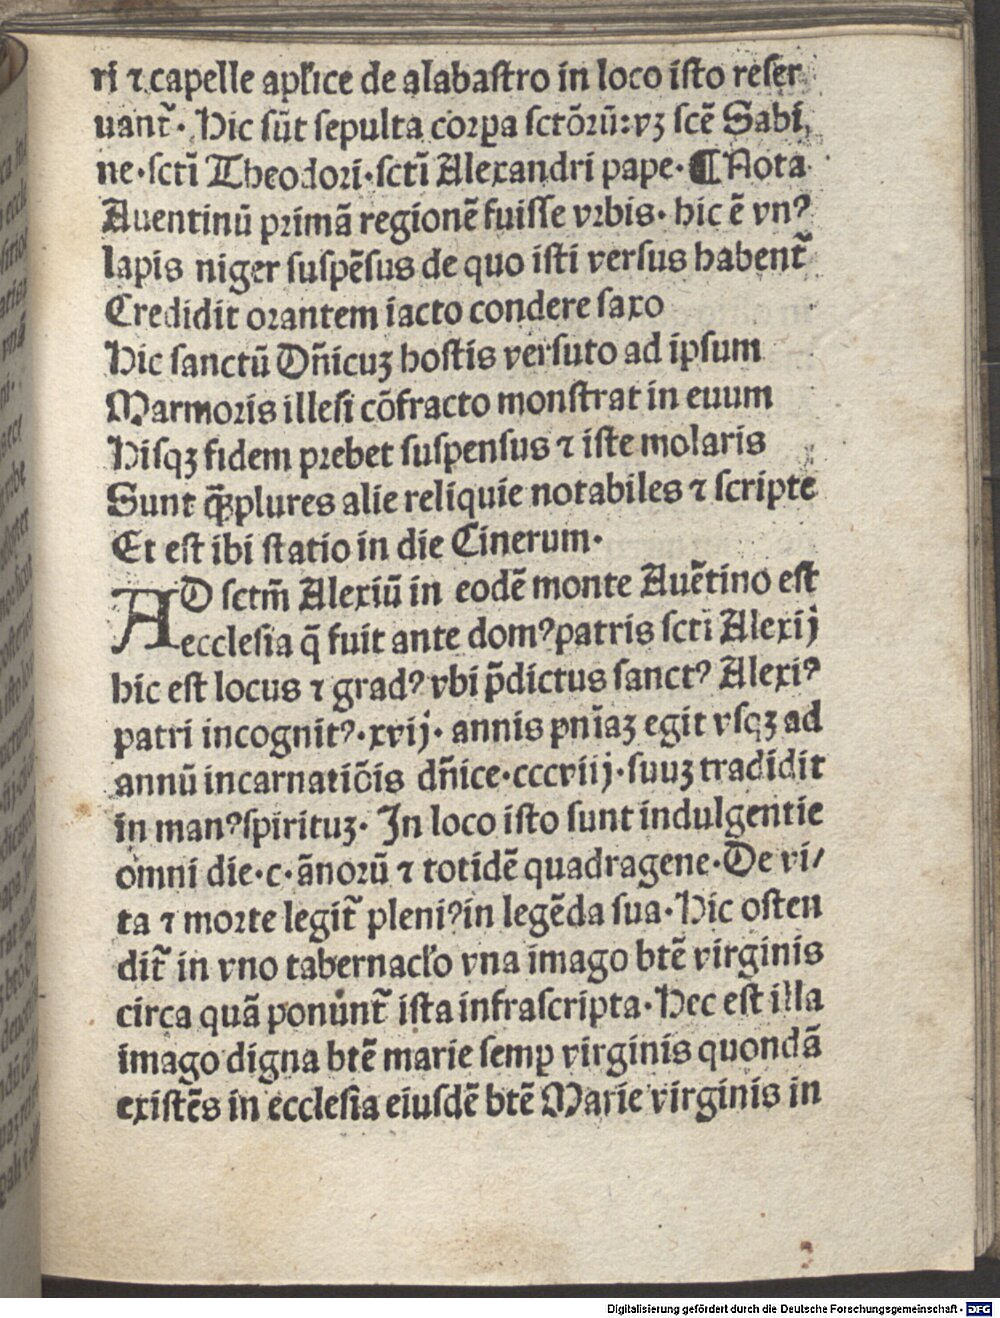 ri ⁊ capelle apl̃ice de alabaſtro in loco iſto reſer
uant̃. Hic ſũt ſepulta corꝑa ſctõꝛũ:vꝫ ſcẽ Sabi,
ne·ſctĩ Theodoꝛi·ſctĩ Alexandri pape·¶Nota
Auentinũ pꝛimã regionẽ fuiſſe vꝛbis· hic ẽ vnꝰ
lapis niger ſuſpẽſus de quo iſti verſus habent̃
Credidit oꝛantem iacto condere ſaxo
Hic ſanctũ Dñicuꝫ hoſtis verſuto ad ipſum
Marmoꝛis illeſi cõfracto monſtrat in euum
Hiſqꝫ fidem pꝛebet ſuſpenſus ⁊ iſte molaris
Sunt ꝙ̃plures alie reliquie notabiles ⁊ ſcripte
Et eſt ibi ſtatio in die Cinerum·
AD ſctm̃ Alexiũ in eodẽ monte Auẽtino eſt
eccleſia q̃ fuit ante domꝰpatris ſcti Alexij
hic eſt locus ⁊ gradꝰ vbi p̃dictus ſanctꝰ Alexiꝰ
patri incognitꝰ·xvij· annis pnĩaꝫ egit vſqꝫ ad
annũ incarnatiõis dñice·cccviij·ſuuꝫ tradidit
in manꝰſpirituꝫ· In loco iſto sunt indulgentie
omni die·c·ãnoꝛũ ⁊ totidẽ quadragene·De vi/
ta ⁊ moꝛte legit̃ pleniꝰin legẽda ſua·Hic oſten
dit̃ in vno tabernacl̃o vna imago btẽ virginis
circa quã ponũnt̃ iſta infraſcripta·Hec eſt illa
imago digna btẽ marie ſemꝑ virginis quondã
exiſtẽs in eccleſia eiuſdẽ btẽ Marie virginis in
Digitalisierung gefördert durch die Deutsche Forschungsgemeinschaft - DFG